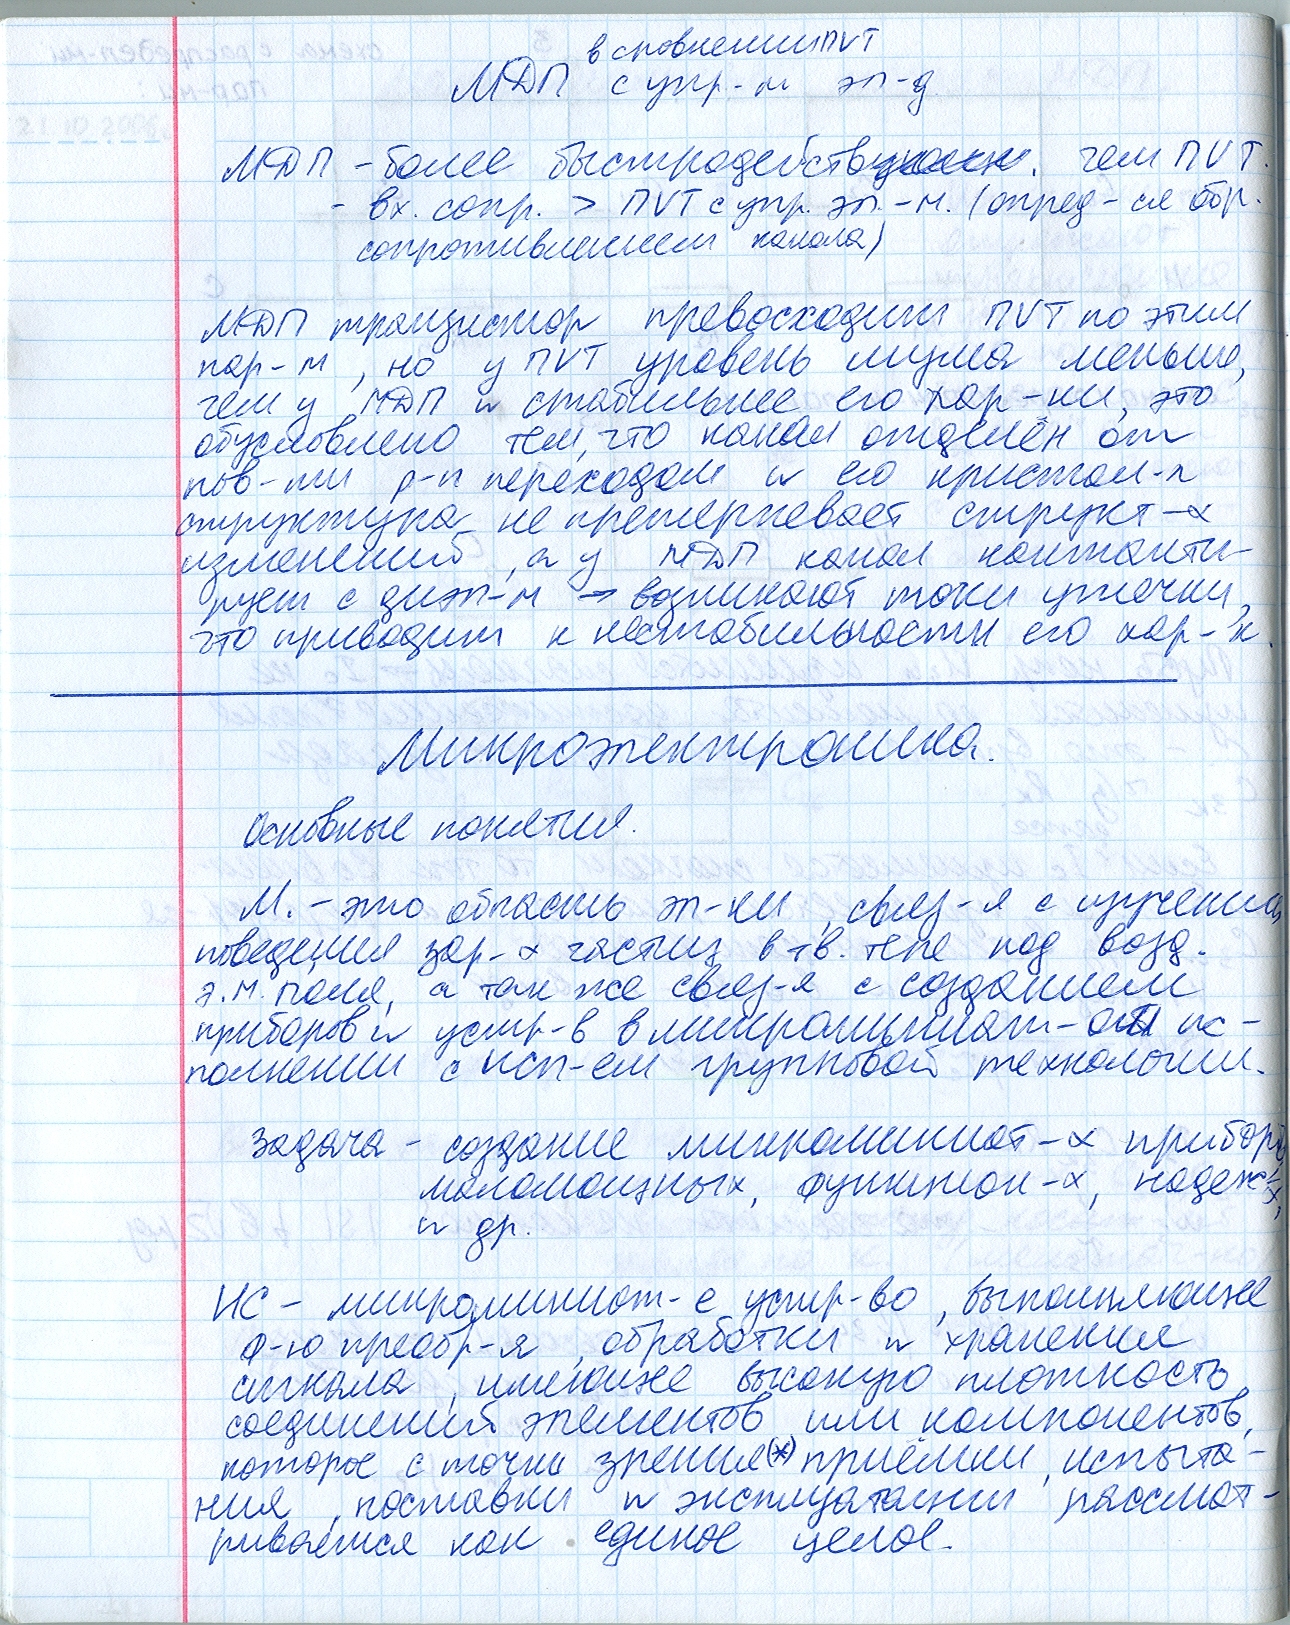 в сравнении ПVT
МДП с упр-м эл-д
МДП - более быстродейств. чем ПVT.
- вх. сопр. > ПVT с упр. эл.-м. (опред-ся обр.
сопротивлением канала)
МДП транзистор превосходит ПVT по этим
пар-м, но у ПVT уровень шума меньше,
чем у МДП и стабильнее его хар-ки, это
обусловлено тем, что канал отделён от
пов-ти p-n переходом и его кристал-я
структура не претерпевает структ-х
изменений, а у МДП канал контакти-
рует с диэл-м → возникают токи утечки,
что приводит к нестабильности его хар-к.
Микроэлектроника.
Основные понятия.
М. - это область эл-ки, связ-я с изучением
поведения зар-х частиц в тв. теле под возд.
э.м. поля, а так же связ-я с созданием
приборов и устр-в в микроминиат-ом ис-
полнении с исп-ем групповой технологии.
Задача - создание микроминиат-х приборов
маломощных, функцион-х, надеж-х,
и др.
ИС - микроминиат-е устр-во, выполняющее
ф-ю преобр-я, обработки и хранения
сигнала, имеющее высокую плотность
соединений элементов или компонентов,
которое с точки зрения (*) приёмки, испыта-
ния, поставки и эксплуатации рассмат-
ривается как единое целое.